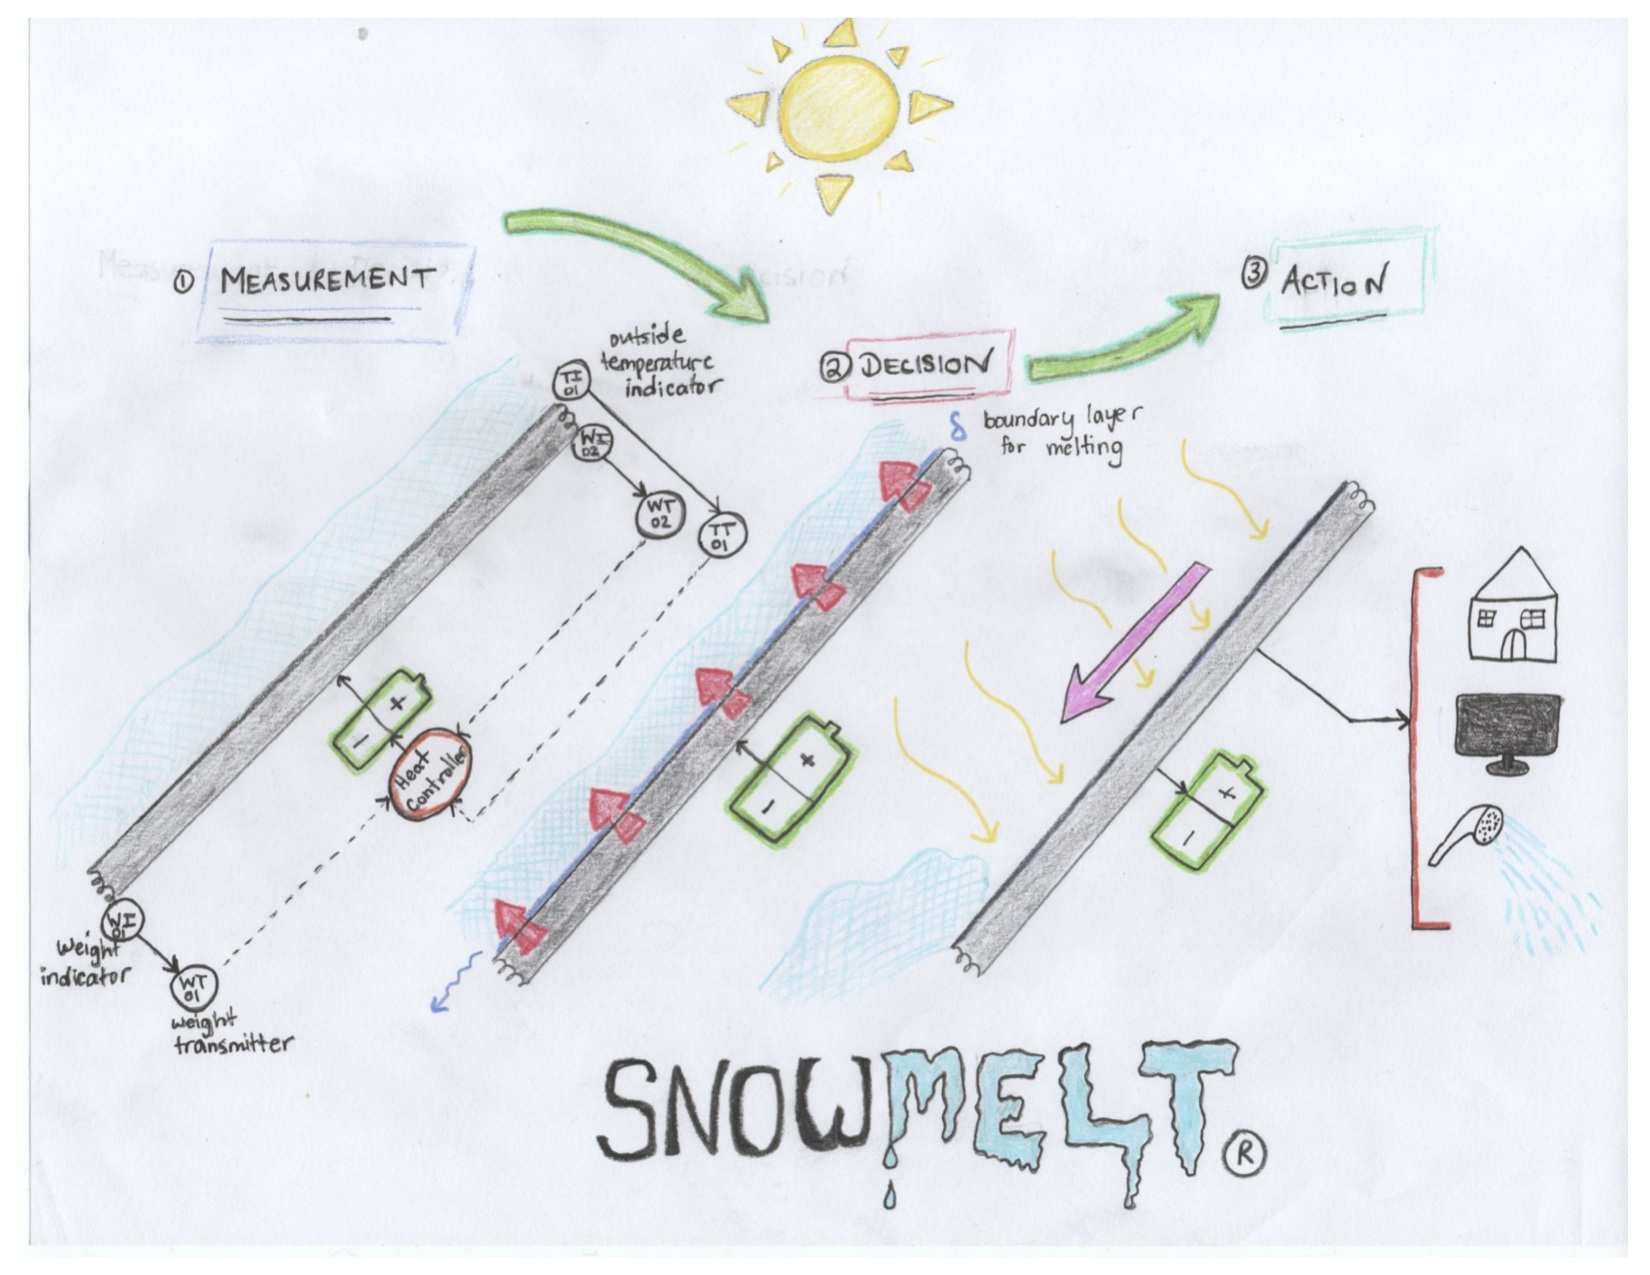 ① MEASUREMENT
② DECISION
③ ACTION
outside
temperature
indicator
TI
01
WI
02
WT
02
TT
01
δ boundary layer
for melting
+
-
Heat
Controller
+
-
+
-
WI
01
Weight
indicator
WT
01
weight
transmitter
SNOWMELT ®